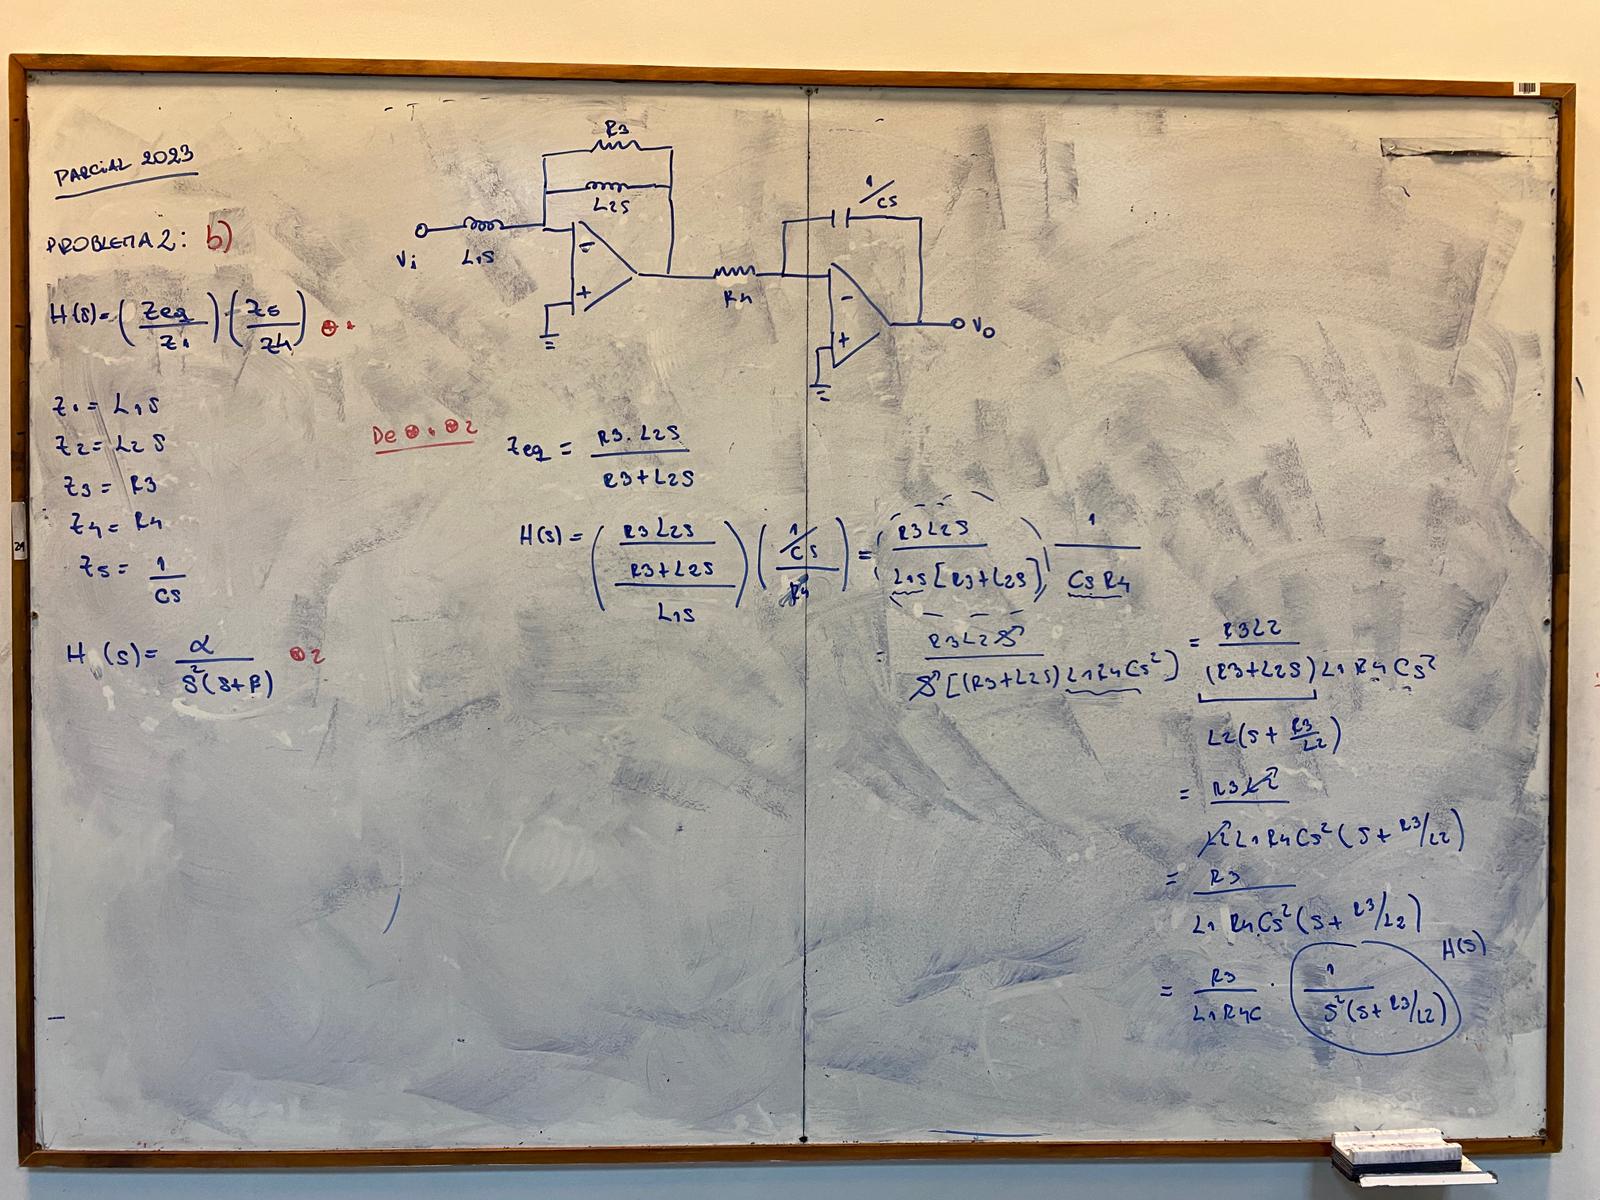 PARCIAL 2023
PROBLEMA 2: b)
H(s) = (Zeq / Z1) (Z5 / Z4) ⊛1
Z1 = L1S
Z2 = L2 S
Z3 = R3
Z4 = R4
Z5 = 1 / CS
H (s) = α / S²(S+β) ⊛2
R3
L2S
Vi
L1S
-
+
R4
1/CS
-
+
Vo
De ⊛1 ⊛2
Zeq = R3. L2S / R3+L2S
H(s) = ((R3 L2S / R3+L2S) / L1S) ((1/CS) / R4) = (R3 L2S / L1S [R3+L2S]) 1 / CS R4
= R3 L2 S / S [(R3+L2S) L1R4CS²] = R3L2 / (R3+L2S) L1 R4 CS²
L2(S + R3/L2)
= R3 L2 / L2 L1 R4 CS² (S + R3/L2)
= R3 / L1 R4 CS² (S + R3/L2)
= R3 / L1R4C · 1 / S²(S + R3/L2) H(s)
21